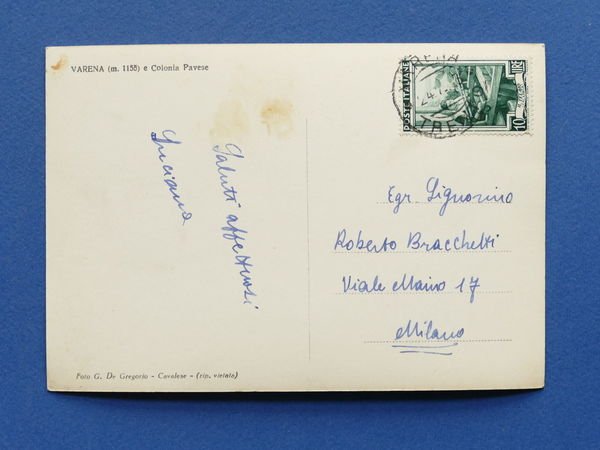 VARENA (m. 1155) e Colonia Pavese
Saluti affettuosi
Luciana
POSTE ITALIANE
10 LIRE
Egr. Signorino
Roberto Bracchetti
Viale Maino 17
Milano
Foto G. De Gregorio - Cavalese - (rip. vietata)